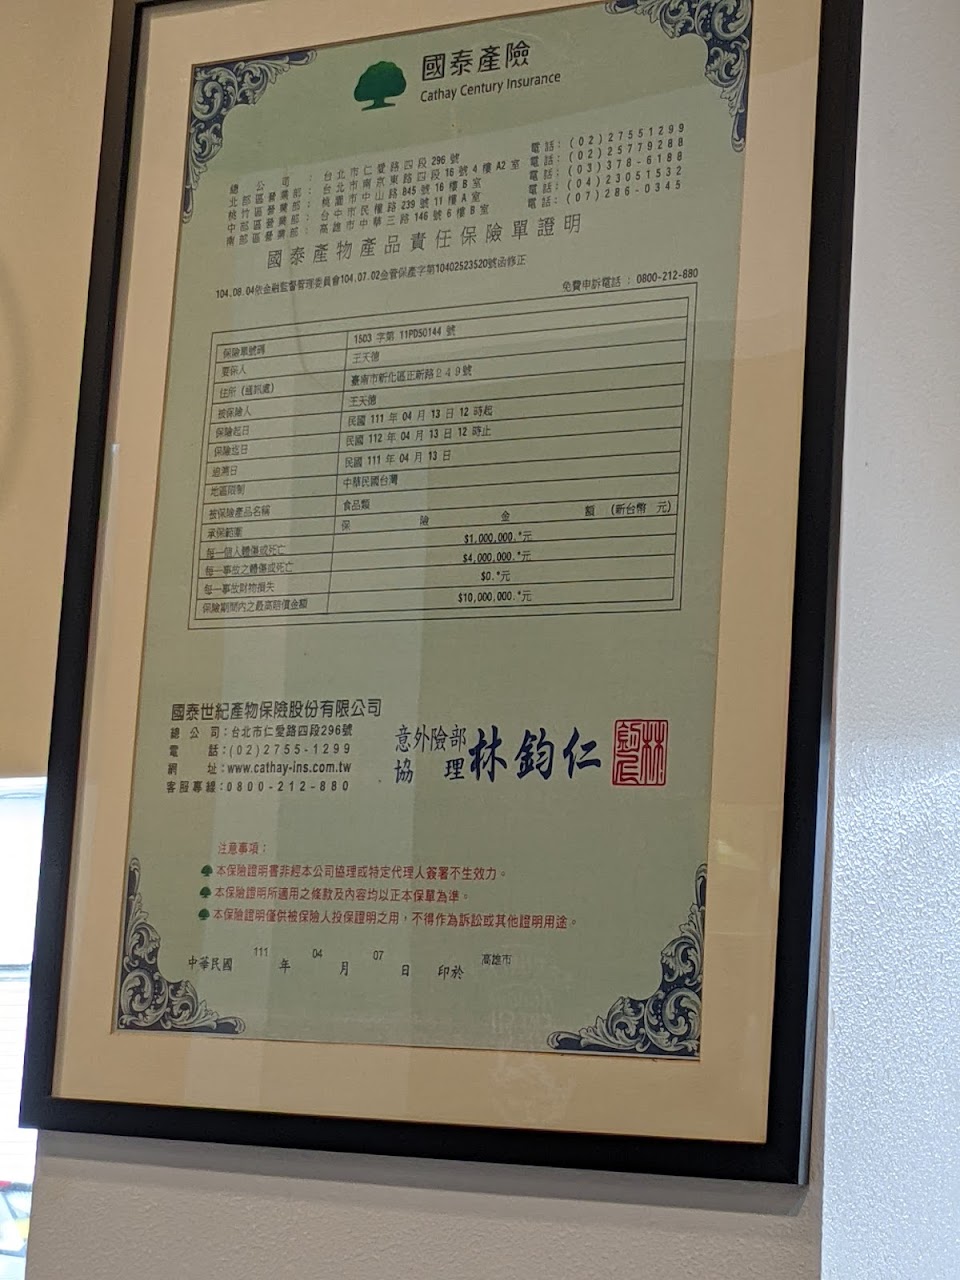 國泰產險
Cathay Century Insurance
總公司：台北市仁愛路四段296號 電話：(02)27551299
北部區營業部：台北市南京東路四段16號4樓A2室 電話：(02)25779288
桃竹區營業部：桃園市中山路845號16樓B室 電話：(03)378-6188
中部區營業部：台中市民權路239號11樓A室 電話：(04)23051532
南部區營業部：高雄市中華三路146號6樓B室 電話：(07)286-0345
國泰產物產品責任保險單證明
104.08.04依金融監督管理委員會104.07.02金管保產字第10402523520號函修正
免費申訴電話：0800-212-880
保險單號碼 1503 字第 11PD50144 號
要保人 王天德
住所（通訊處） 臺南市新化區正新路249號
被保險人 王天德
保險起日 民國 111 年 04 月 13 日 12 時起
保險迄日 民國 112 年 04 月 13 日 12 時止
追溯日 民國 111 年 04 月 13 日
地區限制 中華民國台灣
被保險產品名稱 食品類
承保範圍 保險金額 (新台幣 元)
每一個人體傷或死亡 $1,000,000.*元
每一事故之體傷或死亡 $4,000,000.*元
每一事故財物損失 $0.*元
保險期間內之最高賠償金額 $10,000,000.*元
國泰世紀產物保險股份有限公司
總公司：台北市仁愛路四段296號
電話：(02)2755-1299
網址：www.cathay-ins.com.tw
客服專線：0800-212-880
意外險部
協理 林鈞仁
林鈞仁
注意事項：
本保險證明書非經本公司協理或特定代理人簽署不生效力。
本保險證明所適用之條款及內容均以正本保單為準。
本保險證明僅供被保險人投保證明之用，不得作為訴訟或其他證明用途。
中華民國 111 年 04 月 07 日 印於 高雄市